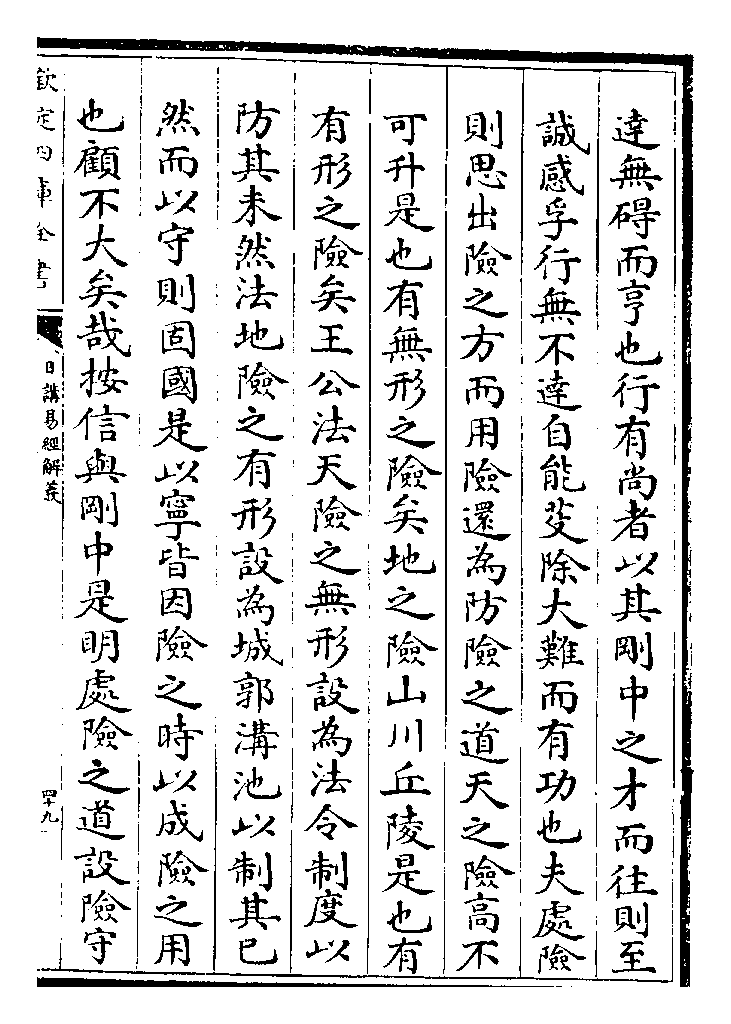 達無礙而亨也行有尚者以其剛中之才而往則至
誠感孚行無不達自能芟除大難而有功也夫處險
則思出險之方而用險還為防險之道天之險高不
可升是也有無形之險矣地之險山川丘陵是也有
有形之險矣王公法天險之無形設為法令制度以
防其未然法地險之有形設為城郭溝池以制其已
然而以守則固國是以寧皆因險之時以成險之用
也顧不大矣哉按信與剛中是明處險之道設險守
欽定四庫全書
日講易經解義
四十九